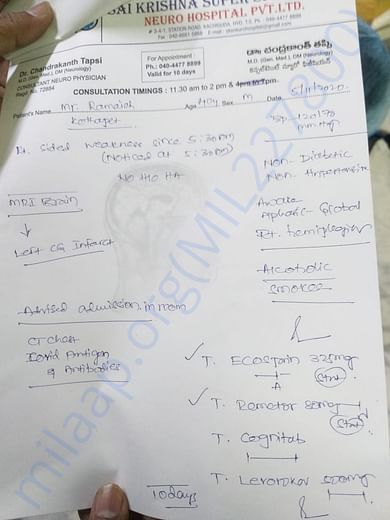 SAI KRISHNA SUPER
NEURO HOSPITAL PVT.LTD.
# 3-4-1, STATION ROAD, KACHIGUDA, HYD. 13, Ph : 040-4477 8899
Dr. Chandrakanth Tapsi
M.D. (Gen. Med.), DM (Neurology)
CONSULTANT NEURO PHYSICIAN
Regd. No. 72884
For Appointment :
Ph.: 040-4477 8899
Valid for 10 days
డా॥ చంద్రకాంత్ తప్సి
M.D. (Gen. Med.), DM (Neurology)
కన్సల్టెంట్ న్యూరో ఫిజీషియన్
CONSULTATION TIMINGS : 11.30 am to 2 pm & 4pm to 7pm.
Patient's Name Mr. Ramaiah Age 40y Sex M Date 5/11/2020
Kothapet
BP-120/70
mmHg
Rt. sided weakness since 5:30pm
(Noticed at 5:30pm)
NO H/O HA
Non-Diabetic
Non-Hypertensive
MRI Brain
Left CG Infarct
Awake
Aphasic-Global
Rt. hemiplegia
Alcoholic
smoker
Advised admission in
CT Chest
Covid Antigen
& Antibodies
T. ECOSPRIN 325mg
Stat
T. 80mg
Stat
T. Cognitab
T. 500mg
10 days
milaap.org(MIL227800)